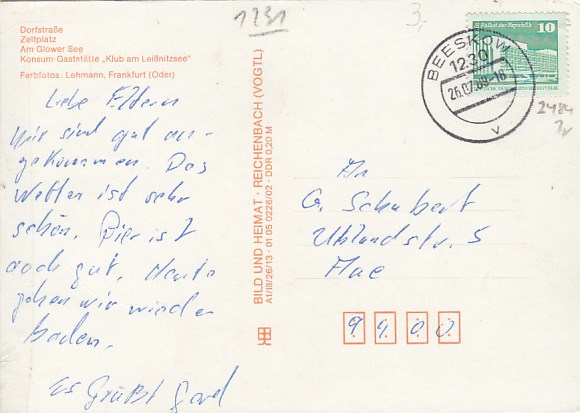 1231
3,-
Dorfstraße
Zeltplatz
Am Glower See
Konsum-Gaststätte „Klub am Leißnitzsee“
Farbfotos: Lehmann, Frankfurt (Oder)
Liebe Eltern
Wir sind gut an-
gekommen. Das
Wetter ist sehr
schön. Bier ist
auch gut. Heute
gehen wir wieder
baden.
es Grüßt Gerd
BILD UND HEIMAT · REICHENBACH (VOGTL)
A1/III/26/13 · 01 05 0226/02 · DDR 0,20 M
Palast der Republik 10
DDR
BEESKOW
1230
26.07.89-18
v
2484
An
G. Schubert
Uhlandstr. 5
9900